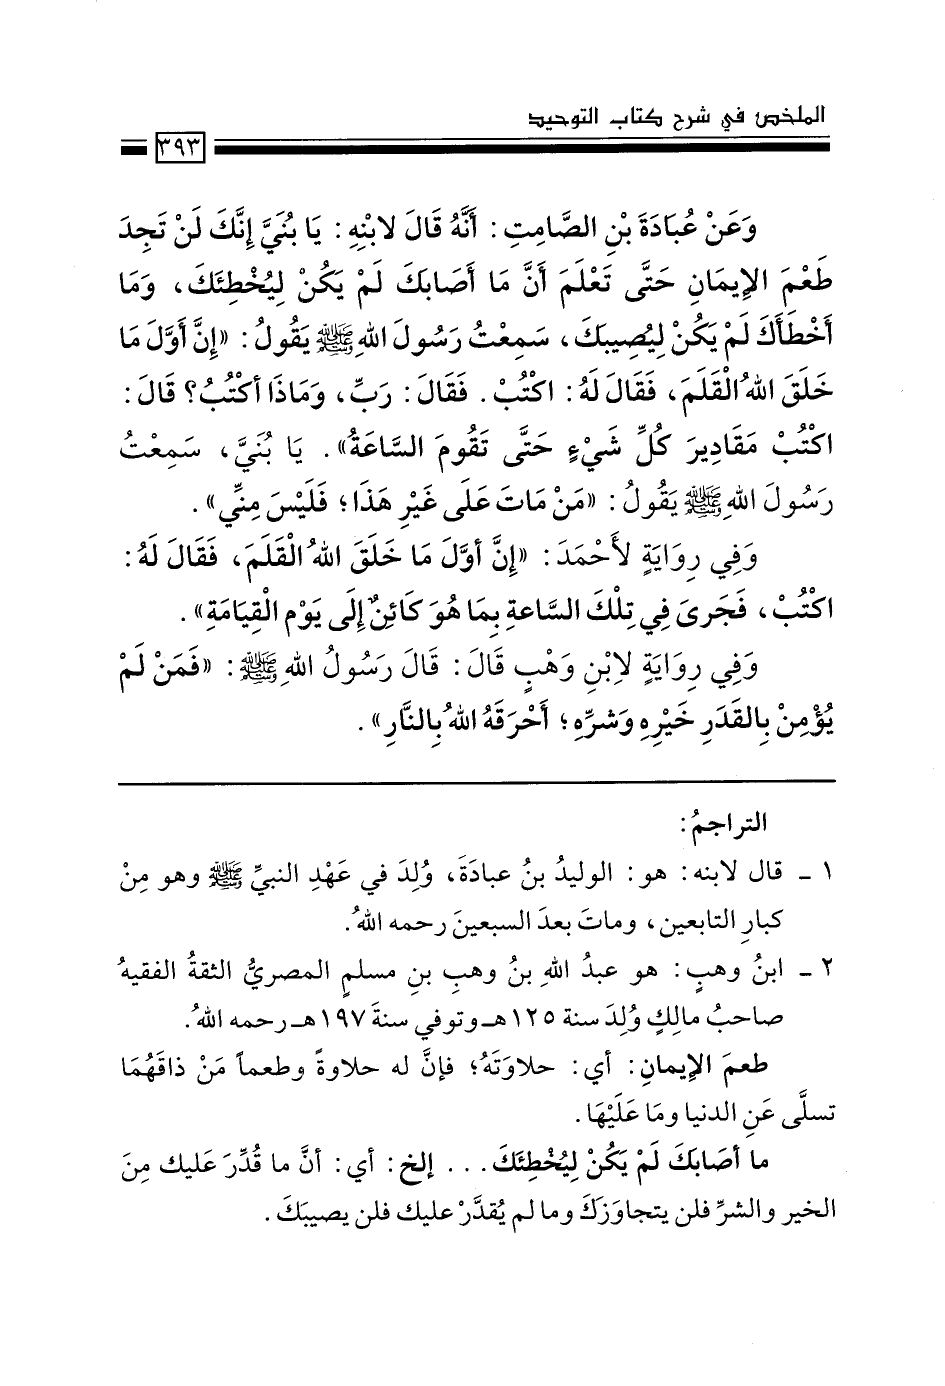 الملخص في شرح كتاب التوحيد
٣٩٣
وَعَنْ عُبَادَةَ بْنِ الصَّامِتِ: أَنَّهُ قَالَ لابْنِهِ: يَا بُنَيَّ إِنَّكَ لَنْ تَجِدَ
طَعْمَ الإِيمَانِ حَتَّى تَعْلَمَ أَنَّ مَا أَصَابَكَ لَمْ يَكُنْ لِيُخْطِئَكَ، وَمَا
أَخْطَأَكَ لَمْ يَكُنْ لِيُصِيبَكَ، سَمِعْتُ رَسُولَ اللهِ ﷺ يَقُولُ: «إِنَّ أَوَّلَ مَا
خَلَقَ اللهُ الْقَلَمَ، فَقَالَ لَهُ: اكْتُبْ. فَقَالَ: رَبِّ، وَمَاذَا أكْتُبُ؟ قَالَ:
اكْتُبْ مَقَادِيرَ كُلِّ شَيْءٍ حَتَّى تَقُومَ السَّاعَةُ». يَا بُنَيَّ، سَمِعْتُ
رَسُولَ اللهِ ﷺ يَقُولُ: «مَنْ مَاتَ عَلَى غَيْرِ هَذَا؛ فَلَيْسَ مِنِّي».
وَفِي رِوَايَةٍ لأَحْمَدَ: «إِنَّ أوَّلَ مَا خَلَقَ اللهُ الْقَلَمَ، فَقَالَ لَهُ:
اكْتُبْ، فَجَرَى فِي تِلْكَ السَّاعةِ بِمَا هُوَ كَائِنٌ إِلَى يَوْمِ الْقِيَامَةِ».
وَفِي رِوَايَةٍ لاِبْنِ وَهْبٍ قَالَ: قَالَ رَسُولُ اللهِ ﷺ: «فَمَنْ لَمْ
يُؤْمِنْ بِالقَدَرِ خَيْرِهِ وَشَرِّهِ؛ أَحْرَقَهُ اللهُ بِالنَّارِ».
التراجمُ:
١ ـ قال لابنه: هو: الوليدُ بنُ عبادَةَ، وُلِدَ في عَهْدِ النبيِّ ﷺ وهو مِنْ
كبارِ التابعين، وماتَ بعدَ السبعينَ رحمه اللهُ.
٢ ـ ابنُ وهبٍ: هو عبدُ اللهِ بنُ وهبِ بنِ مسلمٍ المصريُّ الثقةُ الفقيهُ
صاحبُ مالكٍ وُلِدَ سنة ١٢٥ هـ وتوفي سنةَ ١٩٧ هـ رحمه اللهُ.
طعمَ الإيمانِ: أي: حلاوَتَهُ؛ فإنَّ له حلاوةً وطعماً مَنْ ذاقَهُمَا
تسلَّى عَنِ الدنيا ومَا عَلَيْهَا.
ما أصَابَكَ لَمْ يَكُنْ لِيُخْطِئَكَ... إلخ: أي: أنَّ ما قُدِّرَ عَليك مِنَ
الخير والشرِّ فلن يتجاوَزَكَ وما لم يُقدَّرْ عليك فلن يصيبَكَ.